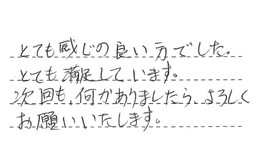 とても感じの良い方でした。
とても満足しています。
次回も、何かありましたら、よろしく
お願いいたします。